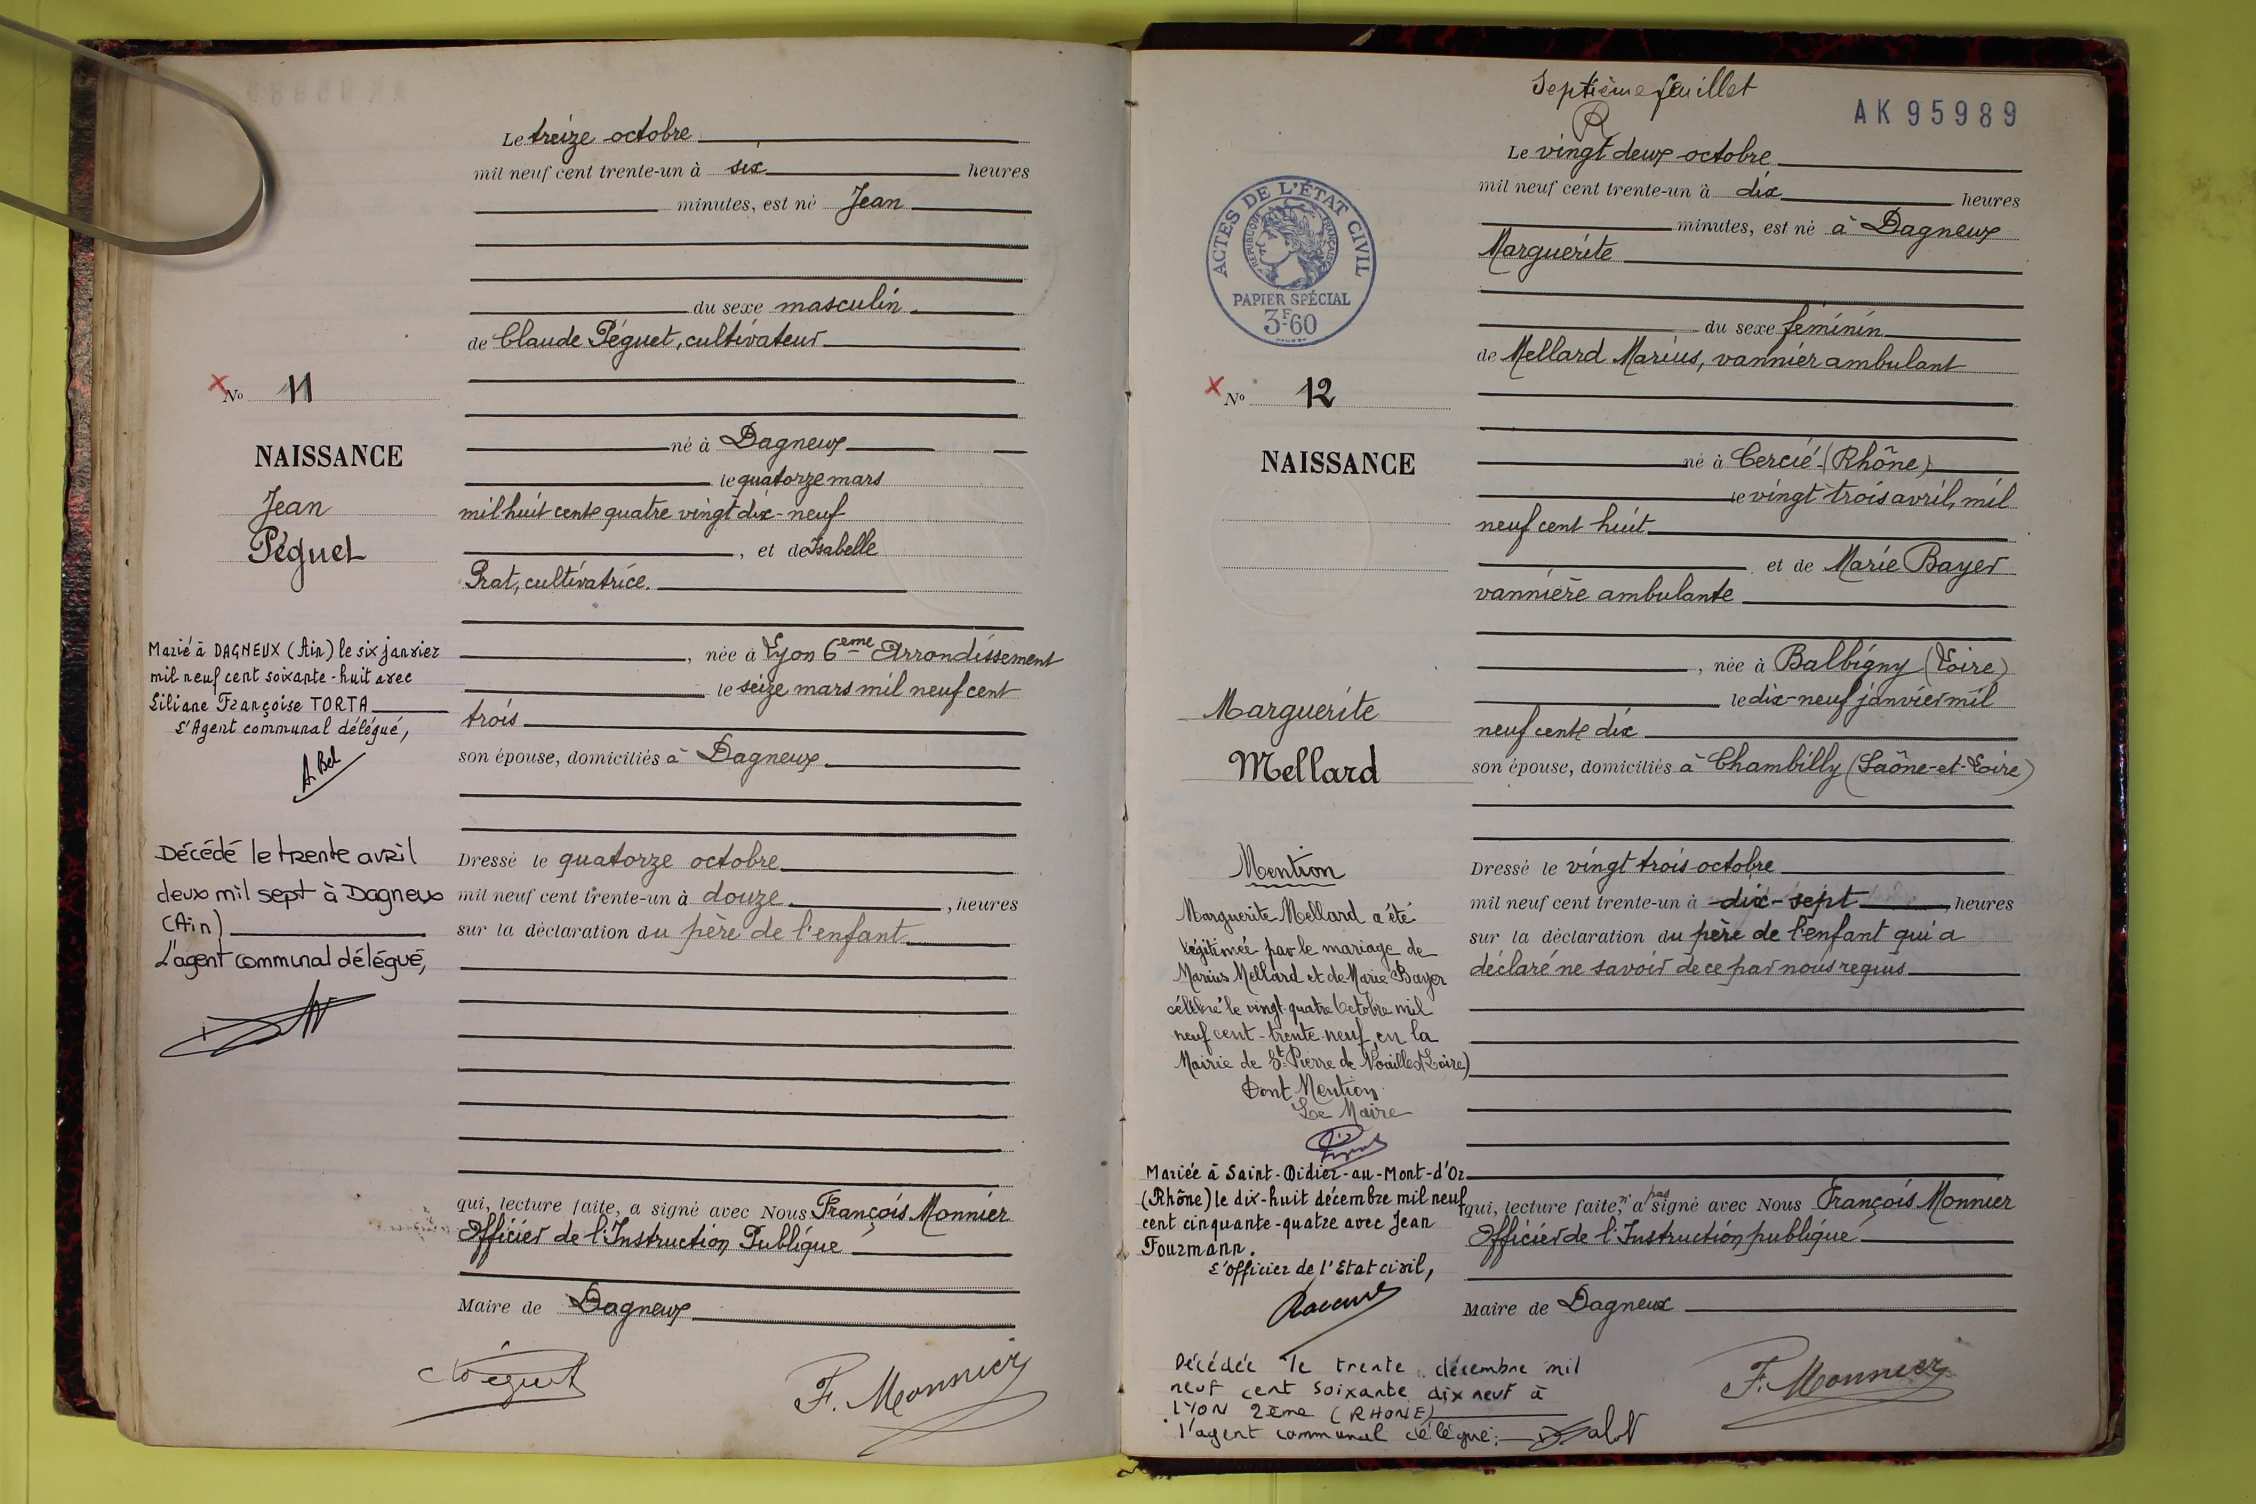 Le treize octobre
mil neuf cent trente-un à six heures
minutes, est né Jean
du sexe masculin
de Claude Péguet, cultivateur
né à Dagneux
le quatorze mars
mil huit cents quatre vingt dix-neuf
, et de Isabelle
Prat, cultivatrice.
, née à Lyon 6eme Arrondissement
le seize mars mil neuf cent
trois
son épouse, domiciliés à Dagneux
Dressé le quatorze octobre
mil neuf cent trente-un à douze , heures
sur la déclaration du père de l'enfant
qui, lecture faite, a signé avec Nous François Monnier
Officier de l'Instruction Publique
Maire de Dagneux
Péguet
F. Monnier
No 11
NAISSANCE
Jean
Péguet
Marié à DAGNEUX (Ain) le six janvier
mil neuf cent soixante-huit avec
Liliane Françoise TORTA
L'Agent communal délégué,
A. Bel
Décédé le trente avril
deux mil sept à Dagneux
(Ain)
L'agent communal délégué,
Septième feuillet
AK 95989
Le vingt deux octobre
mil neuf cent trente-un à dix heures
minutes, est né à Dagneux
Marguerite
du sexe féminin
de Mellard Marius, vannier ambulant
né à Cercié (Rhône)
le vingt trois avril, mil
neuf cent huit
et de Marie Bayer
vannière ambulante
, née à Balbigny (Loire)
le dix-neuf janvier mil
neuf cents dix
son épouse, domiciliés à Chambilly (Saône-et-Loire)
Dressé le vingt trois octobre
mil neuf cent trente-un à dix-sept , heures
sur la déclaration du père de l'enfant qui a
déclaré ne savoir de ce par nous requis
qui, lecture faite, n'a pas signé avec Nous François Monnier
Officier de l'Instruction publique
Maire de Dagneux
F. Monnier
ACTES DE L'ÉTAT CIVIL
RÉPUBLIQUE FRANÇAISE
PAPIER SPÉCIAL
3F60
No 12
NAISSANCE
Marguerite
Mellard
Mention
Marguerite Mellard a été
légitimée par le mariage de
Marius Mellard et de Marie Bayer
célébré le vingt-quatre Octobre mil
neuf cent-trente-neuf en la
Mairie de St-Pierre de Noailles (Loire)
Dont Mention
Le Maire
Mariée à Saint-Didier-au-Mont-d'Or
(Rhône) le dix-huit décembre mil neuf
cent cinquante-quatre avec Jean
Fourmann.
L'officier de l'Etat civil,
Décédée le trente décembre mil
neuf cent soixante dix neuf à
LYON 2ème (RHONE)
l'agent communal délégué: